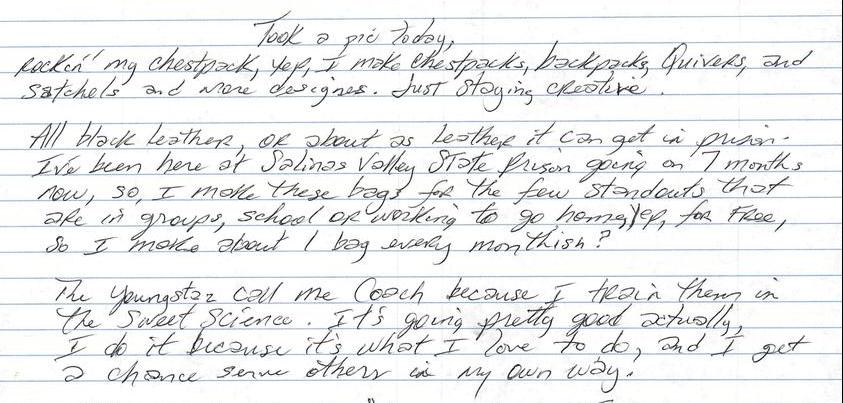 Took a pic today,
Rockin' my chestpack, yep, I make chestpacks, backpacks, Quivers, and
satchels and more designes. Just staying creative.
All black leather, or about as leather it can get in prison.
I've been here at Salinas Valley State Prison going on 7 months
now, so, I make these bags for the few standouts that
are in groups, school or working to go home, yep, for Free,
So I make about 1 bag every monthish?
The Youngstaz call me Coach because I train them in
the Sweet Science. It's going pretty good actually,
I do it because it's what I love to do, and I get
a chance serve others in my own way.